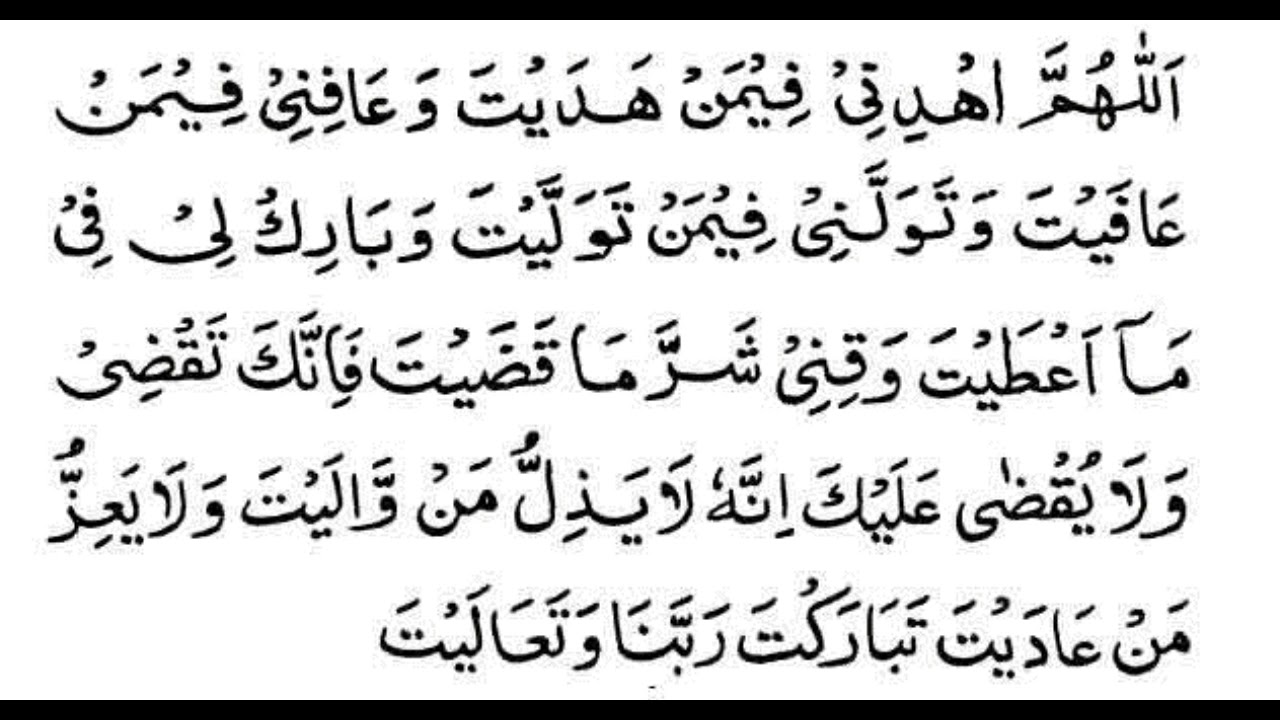 اَللّٰهُمَّ اهْدِنِيْ فِيْمَنْ هَدَيْتَ وَعَافِنِيْ فِيْمَنْ
عَافَيْتَ وَتَوَلَّنِيْ فِيْمَنْ تَوَلَّيْتَ وَبَارِكْ لِيْ فِيْ
مَآ اَعْطَيْتَ وَقِنِيْ شَرَّ مَا قَضَيْتَ فَاِنَّكَ تَقْضِيْ
وَلَا يُقْضٰى عَلَيْكَ اِنَّهٗ لَا يَذِلُّ مَنْ وَّالَيْتَ وَلَا يَعِزُّ
مَنْ عَادَيْتَ تَبَارَكْتَ رَبَّنَا وَتَعَالَيْتَ